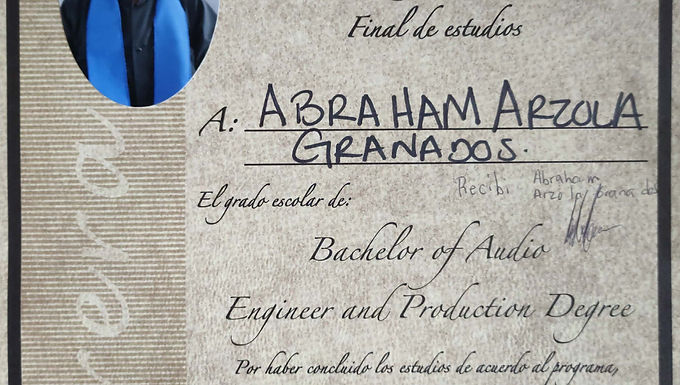 Final de estudios
A: ABRAHAM ARZOLA
GRANADOS.
Recibi Abraham
Arzola Granados
El grado escolar de:
Bachelor of Audio
Engineer and Production Degree
Por haber concluido los estudios de acuerdo al programa,